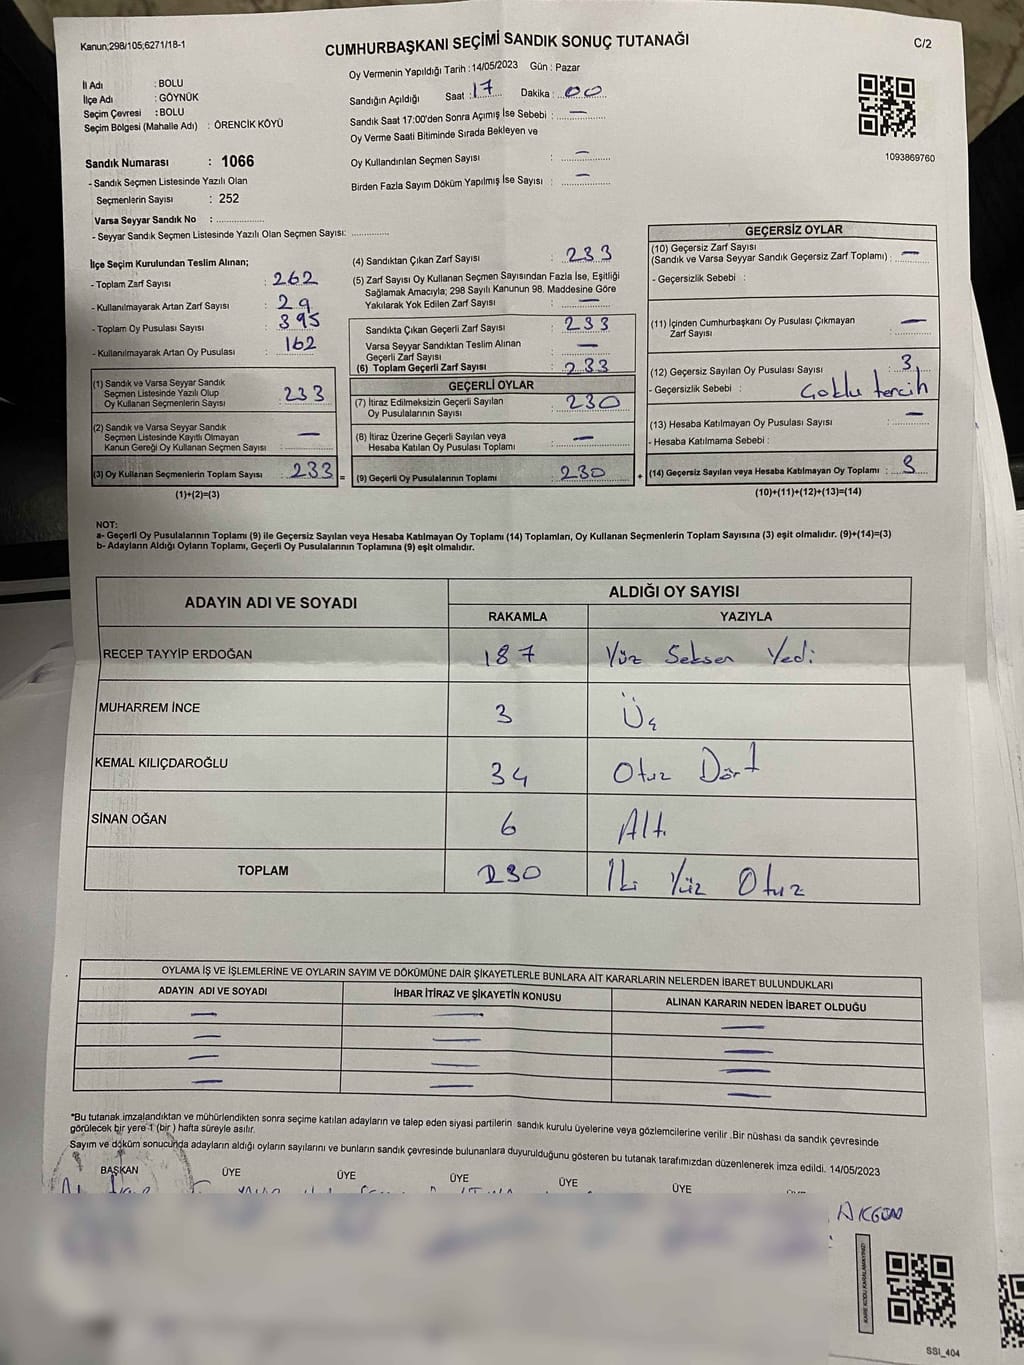 Kanun;298/105;6271/18-1
CUMHURBAŞKANI SEÇİMİ SANDIK SONUÇ TUTANAĞI
C/2
İl Adı : BOLU
İlçe Adı : GÖYNÜK
Seçim Çevresi : BOLU
Seçim Bölgesi (Mahalle Adı) : ÖRENCİK KÖYÜ
Sandık Numarası : 1066
- Sandık Seçmen Listesinde Yazılı Olan
Seçmenlerin Sayısı : 252
Varsa Seyyar Sandık No : ..................
- Seyyar Sandık Seçmen Listesinde Yazılı Olan Seçmen Sayısı: ..............
Oy Vermenin Yapıldığı Tarih : 14/05/2023 Gün : Pazar
Sandığın Açıldığı Saat : 17 Dakika : 00
Sandık Saat 17:00'den Sonra Açımış İse Sebebi : —
Oy Verme Saati Bitiminde Sırada Bekleyen ve
Oy Kullandırılan Seçmen Sayısı : —
Birden Fazla Sayım Döküm Yapılmış İse Sayısı : —
1093869760
İlçe Seçim Kurulundan Teslim Alınan;
- Toplam Zarf Sayısı : 262
- Kullanılmayarak Artan Zarf Sayısı : 29
- Toplam Oy Pusulası Sayısı : 395
- Kullanılmayarak Artan Oy Pusulası : 162
(1) Sandık ve Varsa Seyyar Sandık
Seçmen Listesinde Yazılı Olup
Oy Kullanan Seçmenlerin Sayısı : 233
(2) Sandık ve Varsa Seyyar Sandık
Seçmen Listesinde Kayıtlı Olmayan
Kanun Gereği Oy Kullanan Seçmen Sayısı : —
(3) Oy Kullanan Seçmenlerin Toplam Sayısı : 233 =
(1)+(2)=(3)
(4) Sandıktan Çıkan Zarf Sayısı : 233
(5) Zarf Sayısı Oy Kullanan Seçmen Sayısından Fazla İse, Eşitliği
Sağlamak Amacıyla; 298 Sayılı Kanunun 98. Maddesine Göre
Yakılarak Yok Edilen Zarf Sayısı : —
Sandıkta Çıkan Geçerli Zarf Sayısı : 233
Varsa Seyyar Sandıktan Teslim Alınan
Geçerli Zarf Sayısı : —
(6) Toplam Geçerli Zarf Sayısı : 233
GEÇERLİ OYLAR
(7) İtiraz Edilmeksizin Geçerli Sayılan
Oy Pusulalarının Sayısı : 230
(8) İtiraz Üzerine Geçerli Sayılan veya
Hesaba Katılan Oy Pusulası Toplamı : —
(9) Geçerli Oy Pusulalarının Toplamı : 230 +
GEÇERSİZ OYLAR
(10) Geçersiz Zarf Sayısı
(Sandık ve Varsa Seyyar Sandık Geçersiz Zarf Toplamı) : —
- Geçersizlik Sebebi :
(11) İçinden Cumhurbaşkanı Oy Pusulası Çıkmayan
Zarf Sayısı : —
(12) Geçersiz Sayılan Oy Pusulası Sayısı : 3
- Geçersizlik Sebebi : Çoklu tercih
(13) Hesaba Katılmayan Oy Pusulası Sayısı : —
- Hesaba Katılmama Sebebi :
(14) Geçersiz Sayılan veya Hesaba Katılmayan Oy Toplamı : 3
(10)+(11)+(12)+(13)=(14)
NOT:
a- Geçerli Oy Pusulalarının Toplamı (9) ile Geçersiz Sayılan veya Hesaba Katılmayan Oy Toplamı (14) Toplamları, Oy Kullanan Seçmenlerin Toplam Sayısına (3) eşit olmalıdır. (9)+(14)=(3)
b- Adayların Aldığı Oyların Toplamı, Geçerli Oy Pusulalarının Toplamına (9) eşit olmalıdır.
ADAYIN ADI VE SOYADI
ALDIĞI OY SAYISI
RAKAMLA YAZIYLA
RECEP TAYYİP ERDOĞAN 187 Yüz Seksen Yedi
MUHARREM İNCE 3 Üç
KEMAL KILIÇDAROĞLU 34 Otuz Dört
SİNAN OĞAN 6 Altı
TOPLAM 230 İki Yüz Otuz
OYLAMA İŞ VE İŞLEMLERİNE VE OYLARIN SAYIM VE DÖKÜMÜNE DAİR ŞİKAYETLERLE BUNLARA AİT KARARLARIN NELERDEN İBARET BULUNDUKLARI
ADAYIN ADI VE SOYADI İHBAR İTİRAZ VE ŞİKAYETİN KONUSU ALINAN KARARIN NEDEN İBARET OLDUĞU
— — —
— — —
— — —
— — —
*Bu tutanak imzalandıktan ve mühürlendikten sonra seçime katılan adayların ve talep eden siyasi partilerin sandık kurulu üyelerine veya gözlemcilerine verilir .Bir nüshası da sandık çevresinde
görülecek bir yere 1 (bir ) hafta süreyle asılır.
Sayım ve döküm sonucunda adayların aldığı oyların sayılarını ve bunların sandık çevresinde bulunanlara duyurulduğunu gösteren bu tutanak tarafımızdan düzenlenerek imza edildi. 14/05/2023
BAŞKAN ÜYE ÜYE ÜYE ÜYE ÜYE
AKGÜN
KARE KODU KARALAMAYINIZ!
SSI_404